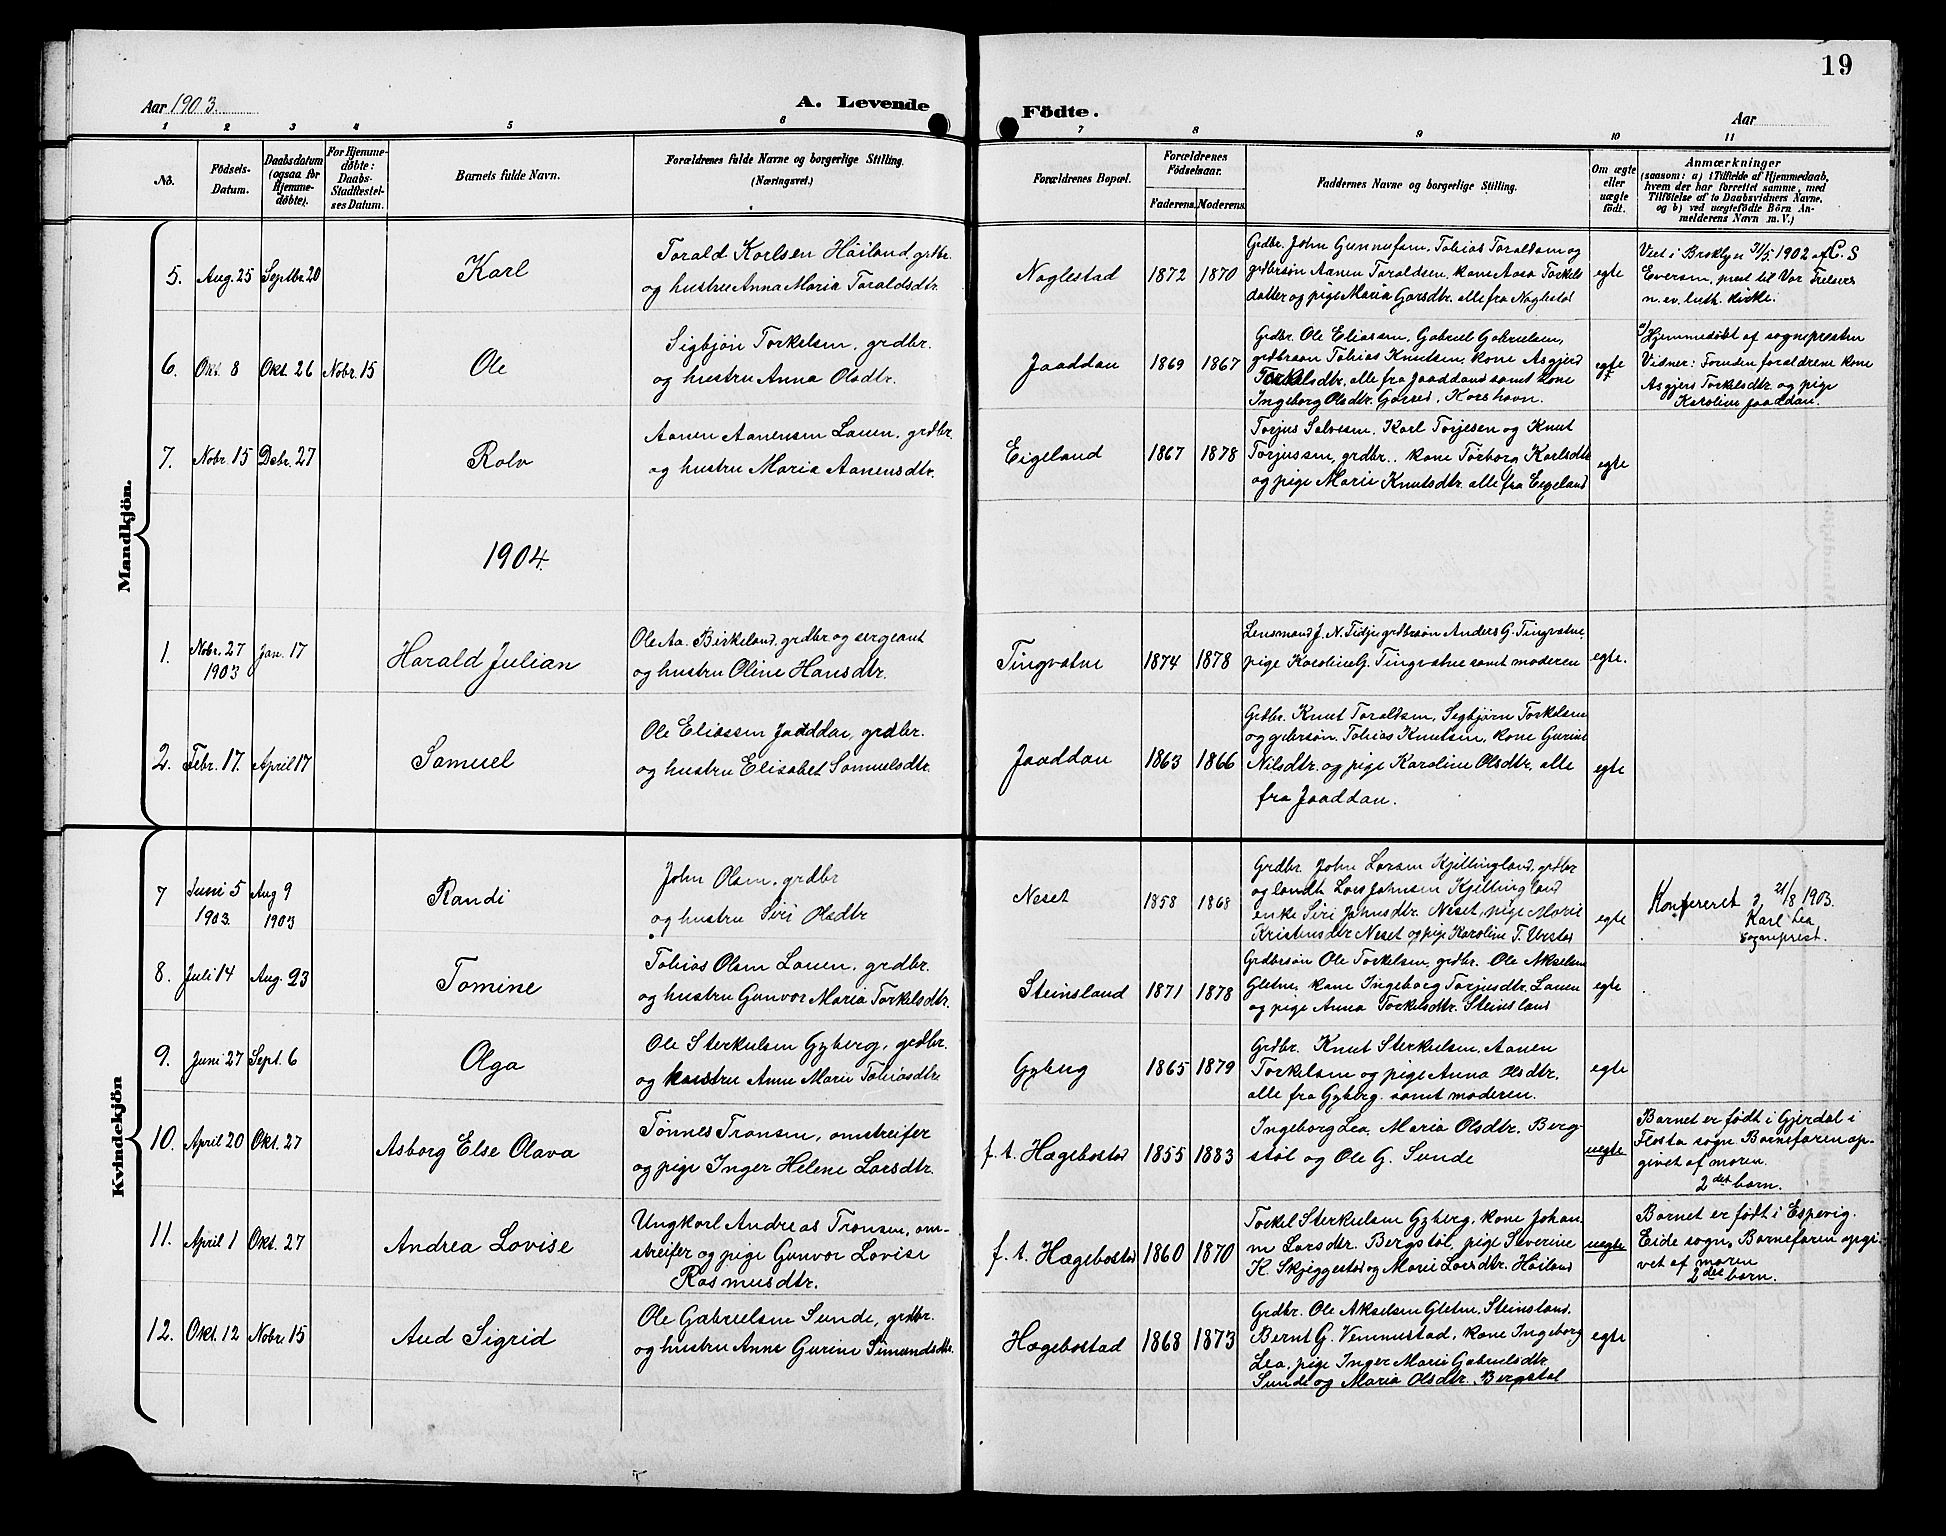 19
Aar 1903.
A. Levende Födte.
Aar
1 2 3 4 5 6 7 8 9 10 11
No.
Födsels-
Datum.
Daabsdatum
(ogsaa for
Hjemme-
døbte).
For Hjemme-
døbte:
Daabs-
Stadfæstel-
ses Datum.
Barnets fulde Navn.
Forældrenes fulde Navne og borgerlige Stilling.
(Næringsvei.)
Forældrenes Bopæl.
Forældrenes
Födselsaar.
Faderens. Moderens.
Faddernes Navne og borgerlige Stilling.
Om ægte
eller
uægte
født.
Anmærkninger
(saasom: a) i Tilfælde af Hjemmedaab,
hvem der har forrettet samme, med
Tilföielse af to Daabsvidners Navne,
og b) ved uægtefödte Börn An-
melderens Navn m. V.)
Mandkjön.
5. Aug. 25 Septbr. 20
Karl
Torald Karlsen Höiland, grdbr.
og hustru Anna Maria Toraldsdtr.
Naglestad 1872 1870
Grdbr. John Gunnufsen, Tobias Toraldsen og
grdbrsøn Aanen Toraldsen, kone Aasa Torkels
datter og pige Maria Larsdtr. alle fra Naglestad
egte
Viet i Broklyn 31/5 1902 af C. S
Eversen, prest til Vor Frelsers
n. ev. luth. kirke.
6. Okt. 8 Okt. 26 Nobr. 15
Ole
Sigbjön Torkelsen, grdbr.
og hustru Anna Olsdtr.
Jaaddan 1869 1867
Grdbr. Ole Eliassen, Gabriel Gabrielsen,
grdbrsøn Tobias Knutsen, kone Asgjerd
Torkelsdtr, alle fra Jaaddan samt kone
Ingeborg Olsdtr. Korshavn.
egte
a) Hjemmedøbt af sognepresten
Vidner: Foruden forældrene kone
Asgjerd Torkelsdtr og pige
Karoline Jaaddan.
7. Nobr. 15 Debr. 27
Rolv
Aanen Aanensen Lauen, grdbr.
og hustru Maria Aanensdtr.
Eigeland 1867 1878
Torjus Salvesen, Karl Torjesen og Knut
Torjussen, grdbr., kone Torborg Karlsdtr
og pige Marie Knutsdtr. alle fra Eigeland
egte
1904.
1. Nobr. 27
1903 Jan. 17
Harald Julian
Ole Aa. Birkeland, grdbr. og sergeant
og hustru Oline Hansdtr.
Tingvatne 1874 1878
Lensmand J. N. Tidje grdbrsøn Anders G. Tingvatne,
pige Karoline G. Tingvatne samt moderen
egte.
2. Febr. 17. April 17
Samuel
Ole Eliassen Jaaddan, grdbr.
og hustru Elisabet Samuelsdtr.
Jaaddan 1863 1866
Grdbr. Knut Toraldsen, Segbjørn Torkelsen
og gdbrsøn. Tobias Knutsen, kone Gurine
Nilsdtr. og pige Karoline Olsdtr, alle
fra Jaaddan.
egte
Kvindekjön
7 Juni 5
1903. Aug 9
1903
Randi
John Olsen, grdbr
og hustru Siri Olsdtr
Neset 1858 1868
Grdbr. John Larsen Kjillingland, grdbr
og landh. Lars Johnsen Kjillingland
enke Siri Johnsdtr. Neset, pige Marie
Kristensdtr Neset og pige Karoline T. Urstad
egte
Konfereret d. 21/8 1903.
Karl Lea
sogneprest.
8. Juli 14 Aug. 23
Tomine
Tobias Olsen Lauen, grdbr.
og hustru Gunvor Maria Torkelsdtr.
Steinsland 1871 1878
Grdbrsøn Ole Torkelsen, grdbr. Ole Akselsen
Gletne, kone Ingeborg Torjusdtr. Lauen
og pige Anna Torkelsdtr. Steinsland
egte
9. Juni 27 Sept. 6
Olga
Ole Sterkulsen Gyberg, grdbr.
og hustru Anne Marie Tobiasdtr
Gyberg 1865 1879
Grdbr. Knut Sterkulsen, Aanen
Torkelsen og pige Anna Olsdtr.
alle fra Gyberg. samt moderen.
egte
10. April 20 Okt. 27
Asborg Else Olava
Tønnes Tronsen, omstreifer
og pige Inger Helene Larsdtr.
f. t. Hægebostad 1855 1883
Ingeborg Lea, Maria Olsdtr. Berg-
støl og Ole G. Sunde
uegte
Barnet er født i Gjerdal i
Flosta sogn. Barnefaren op-
givet af moren.
2det barn.
11. April 1 Okt. 27
Andrea Lovise
Ungkarl Andreas Tronsen, om-
streifer og pige Gunvor Lovise
Rasmusdtr.
f. t. Hægebostad 1860 1870
Torkel Sterkulsen Gyberg, kone Johan
ne Larsdtr. Bergstøl, pige Severine
K. Skjeggestad og Marie Larsdtr. Höiland
uegte
Barnet er født i Espevig.
Eide sogn, Barnefaren opgi-
vet af moren
2det barn.
12. Okt. 12 Nobr. 15
Aud Sigrid
Ole Gabrielsen Sunde, grdbr.
og hustru Anne Gurine Simundsdtr.
Hægebostad 1868 1873
Grdbr. Ole Akselsen Gletne, Steinsland,
Bernt G. Vemmestad, kone Ingeborg
Lea, pige Inger Marie Gabrielsdtr.
Sunde og Maria Olsdtr. Bergstøl
egte